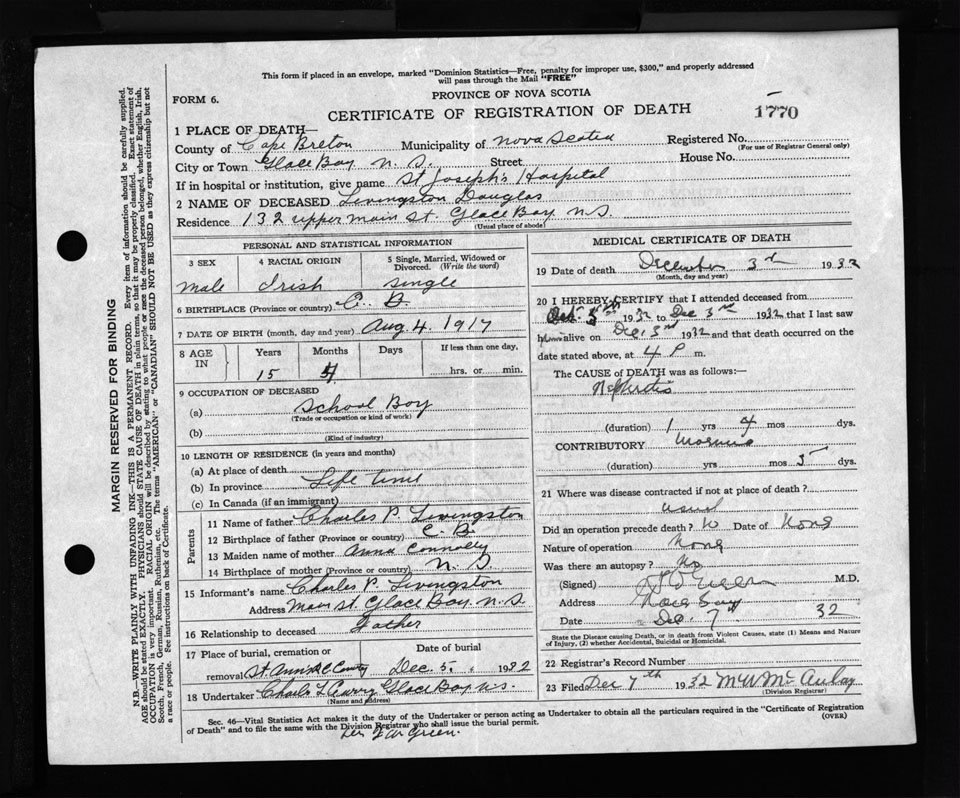 This form if placed in an envelope, marked "Dominion Statistics—Free, penalty for improper use, $300," and properly addressed
will pass through the Mail "FREE"
PROVINCE OF NOVA SCOTIA
FORM 6.
CERTIFICATE OF REGISTRATION OF DEATH
1770
1 PLACE OF DEATH—
County of Cape Breton Municipality of Nova Scotia Registered No.
(For use of Registrar General only)
City or Town Glace Bay N. S. Street House No.
If in hospital or institution, give name St Joseph's Hospital
2 NAME OF DECEASED Livingston Douglas
Residence 132 upper Main St. Glace Bay N.S.
(Usual place of abode)
PERSONAL AND STATISTICAL INFORMATION
3 SEX 4 RACIAL ORIGIN 5 Single, Married, Widowed or Divorced. (Write the word)
male Irish single
6 BIRTHPLACE (Province or country) C. B.
7 DATE OF BIRTH (month, day and year) Aug. 4. 1917
8 AGE IN Years Months Days If less than one day,
15 4 hrs. or min.
9 OCCUPATION OF DECEASED
(a) School Boy
(Trade or occupation or kind of work)
(b)
(Kind of industry)
10 LENGTH OF RESIDENCE (in years and months)
(a) At place of death
(b) In province Life time
(c) In Canada (if an immigrant)
Parents
11 Name of father Charles P. Livingston
12 Birthplace of father (Province or country) C. B.
13 Maiden name of mother Anna Connolly
14 Birthplace of mother (Province or country) N. S.
15 Informant's name Charles P. Livingston
Address Main St. Glace Bay. N.S.
16 Relationship to deceased Father
17 Place of burial, cremation or removal Date of burial
St. Ann's R C Dec 5. 1932
18 Undertaker Glace Bay N.S.
(Name and address)
MEDICAL CERTIFICATE OF DEATH
19 Date of death December 3rd 1932
(Month, day and year)
20 I HEREBY CERTIFY that I attended deceased from
1932 to Dec 3rd 1932 that I last saw
h alive on Dec. 3rd 1932 and that death occurred on the
date stated above, at 4 P m.
The CAUSE OF DEATH was as follows:—
Nephritis
(duration) 1 yrs 4 mos dys.
CONTRIBUTORY
(duration) yrs mos 3 dys.
21 Where was disease contracted if not at place of death?
usual
Did an operation precede death? No Date of None
Nature of operation None
Was there an autopsy? No
(Signed) M.D.
Address Glace Bay
Date Dec. 7th 32
State the Disease causing Death, or in death from Violent Causes, state (1) Means and Nature
of Injury, (2) whether Accidental, Suicidal or Homicidal.
22 Registrar's Record Number
23 Filed Dec 7th 1932 McAulay
(Division Registrar)
Sec. 46—Vital Statistics Act makes it the duty of the Undertaker or person acting as Undertaker to obtain all the particulars required in the "Certificate of Registration
of Death" and to file the same with the Division Registrar who shall issue the burial permit.
(OVER)
Green.
MARGIN RESERVED FOR BINDING
N.B.—WRITE PLAINLY WITH UNFADING INK—THIS IS A PERMANENT RECORD. Every item of information should be carefully supplied.
AGE should be stated EXACTLY. PHYSICIANS should STATE CAUSE OF DEATH in plain terms, so that it may be properly classified. Exact statement of
OCCUPATION is very important. RACIAL ORIGIN will be described by stating to what people or race the deceased person belonged, whether English, Irish,
Scotch, French, German, Russian, Ruthenian, etc. The terms "AMERICAN" or "CANADIAN" SHOULD NOT BE USED as they express citizenship but not
a race or people. See instructions on back of Certificate.